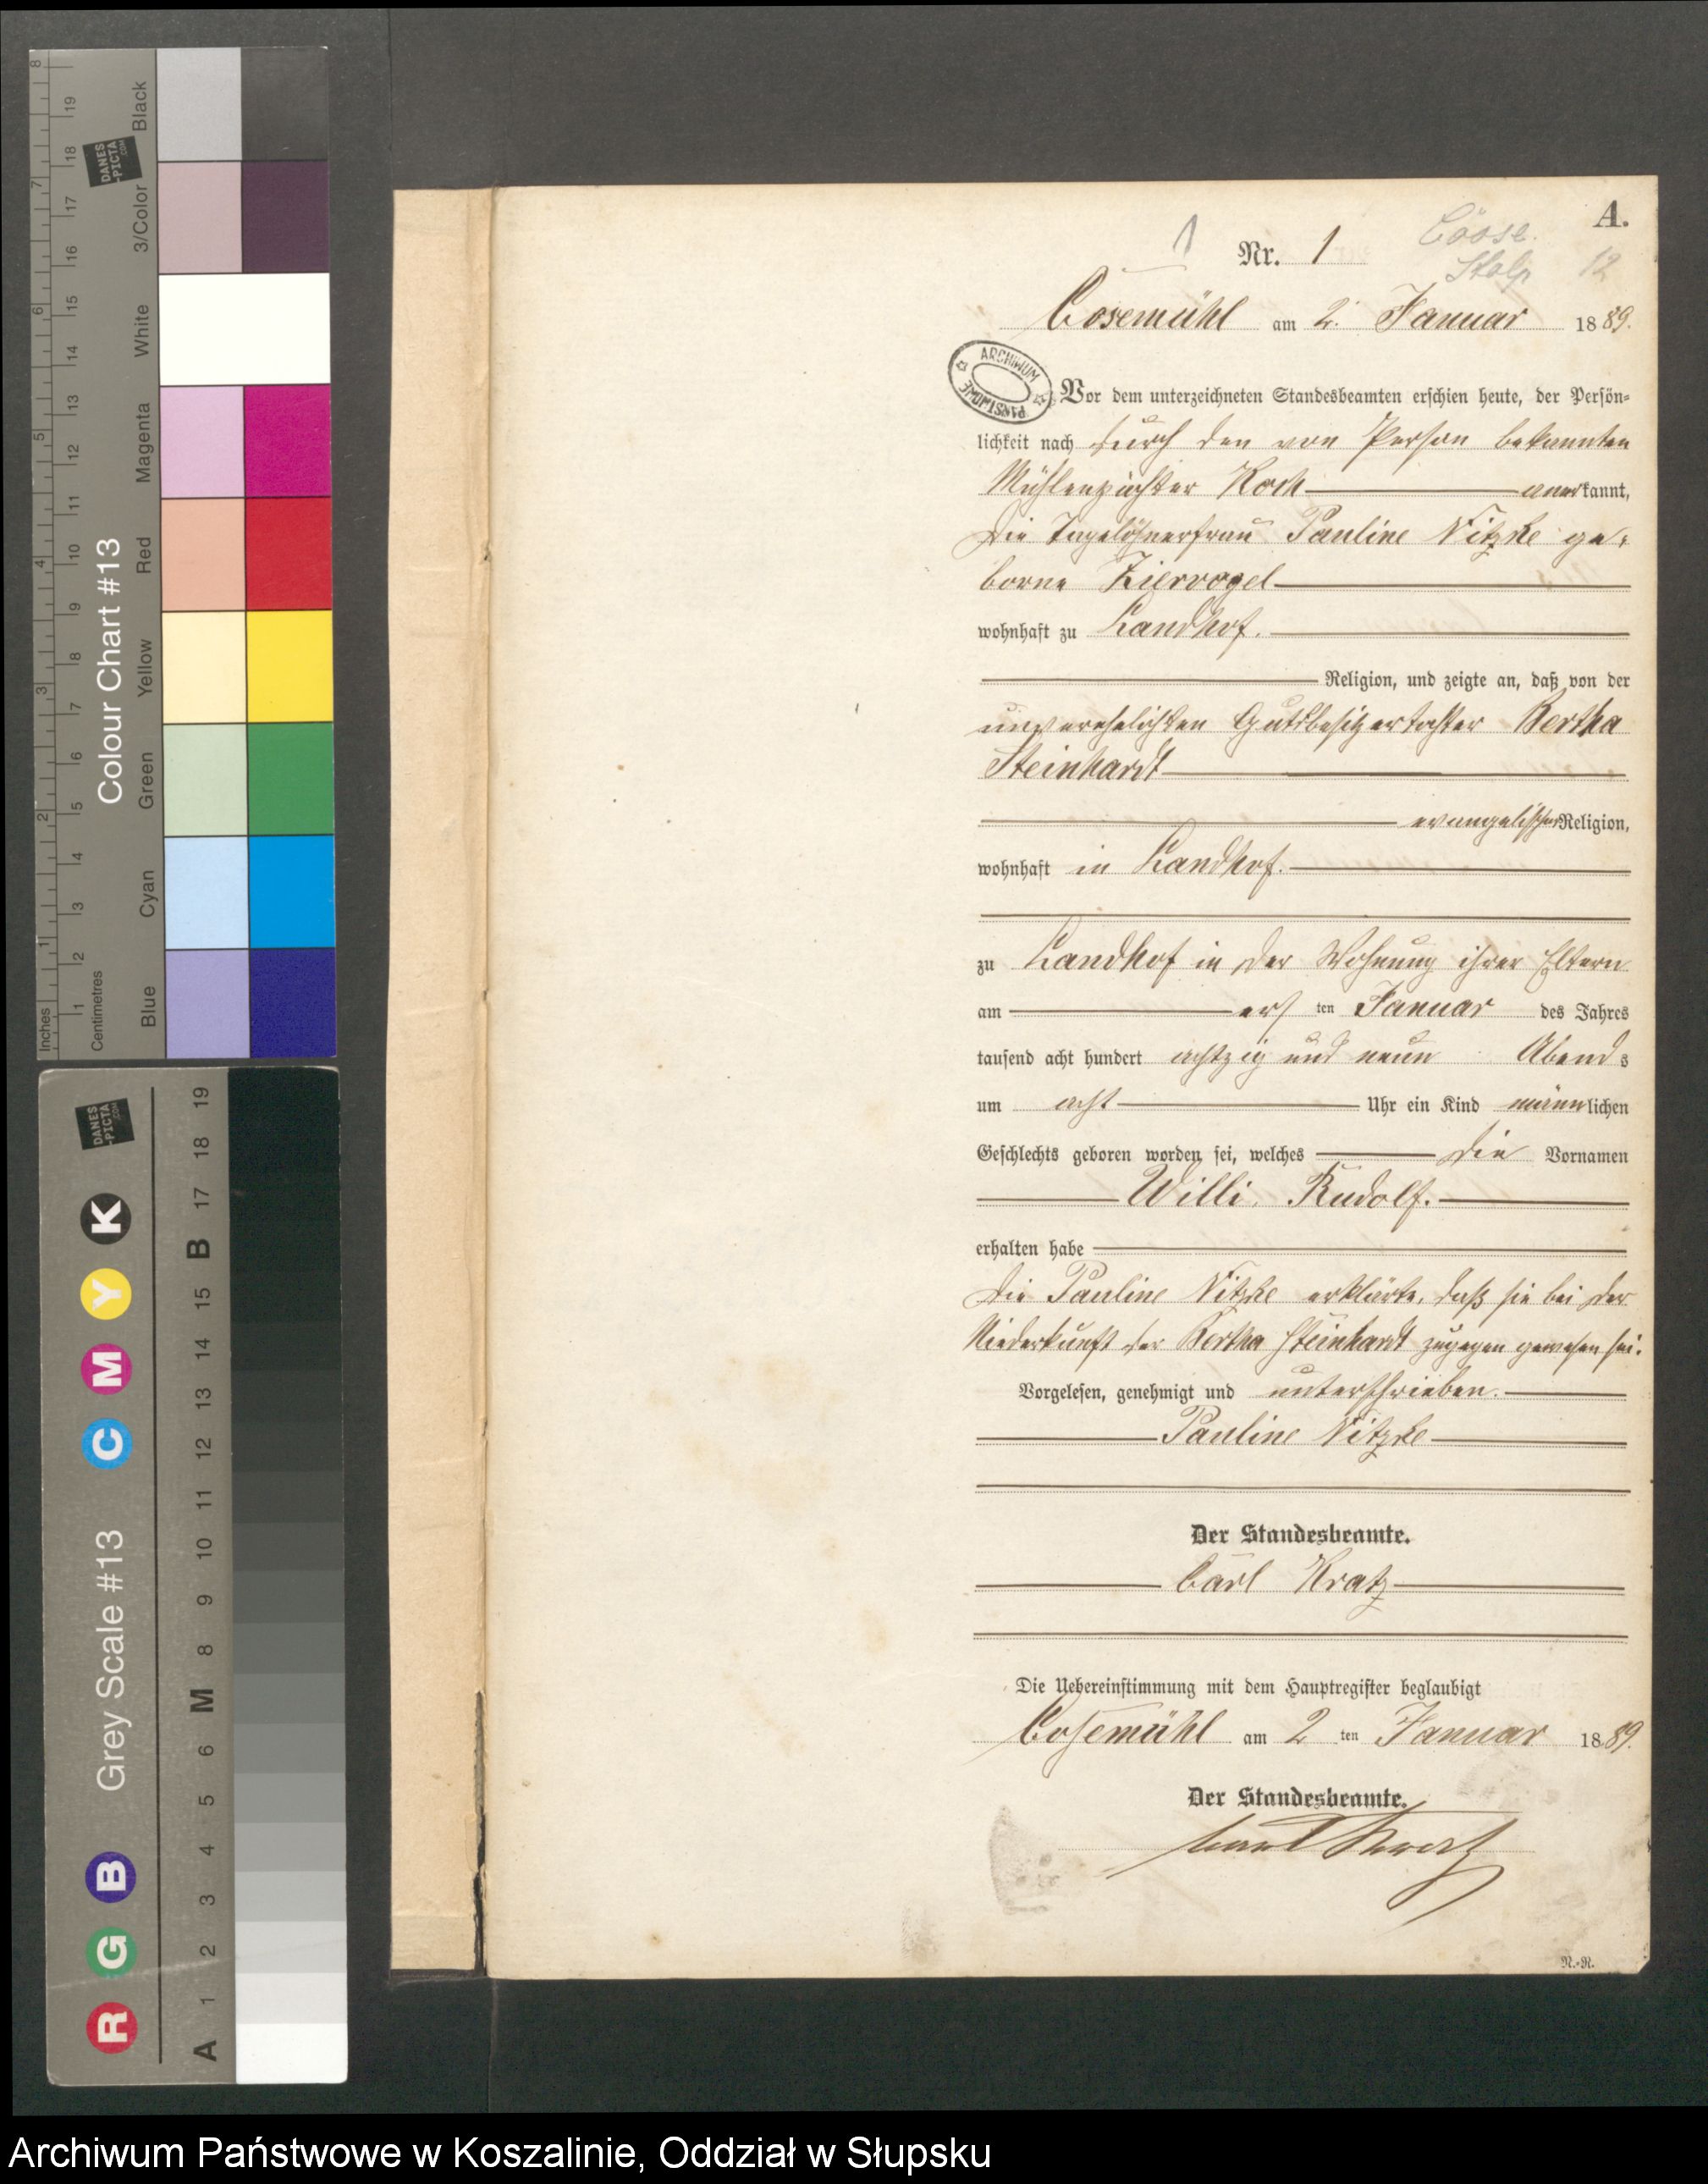 A.
1 Nr. 1 Cöose.
Stolp 12
Cosemühl am 2. Januar 1889.
ARCHIWUM PAŃSTWOWE
Vor dem unterzeichneten Standesbeamten erschien heute, der Persön-
lichkeit nach durch den von Person bekannten
Mühlenpächter Koch anerkannt,
die Tagelöhnerfrau Pauline Nitzke ge-
borne Ziervogel
wohnhaft zu Landhof.
Religion, und zeigte an, daß von der
unverehelichten Gutsbesitzertochter Bertha
Steinhardt
evangelischer Religion,
wohnhaft in Landhof.
zu Landhof in der Wohnung ihrer Eltern
am ersten Januar des Jahres
tausend acht hundert achtzig und neun Abends
um acht Uhr ein Kind männlichen
Geschlechts geboren worden sei, welches die Vornamen
Willi Rudolf.
erhalten habe
Die Pauline Nitzke erklärte, daß sie bei der
Niederkunft der Bertha Steinhardt zugegen gewesen sei.
Vorgelesen, genehmigt und unterschrieben.
Pauline Nitzke
Der Standesbeamte.
Carl Kratz
Die Uebereinstimmung mit dem Hauptregister beglaubigt
Cosemühl am 2 ten Januar 1889.
Der Standesbeamte.
Carl Kratz
N.-R.
Colour Chart #13
Inches 1 2 3 4 5 6 7 8
Centimetres 1 2 3 4 5 6 7 8 9 10 11 12 13 14 15 16 17 18 19
Blue Cyan Green Yellow Red Magenta White 3/Color Black
DANES
-PICTA
.COM
Grey Scale #13
R G B C M Y K
A 1 2 3 4 5 6 M 8 9 10 11 12 13 14 15 B 17 18 19
DANES
-PICTA
.COM
Archiwum Państwowe w Koszalinie, Oddział w Słupsku